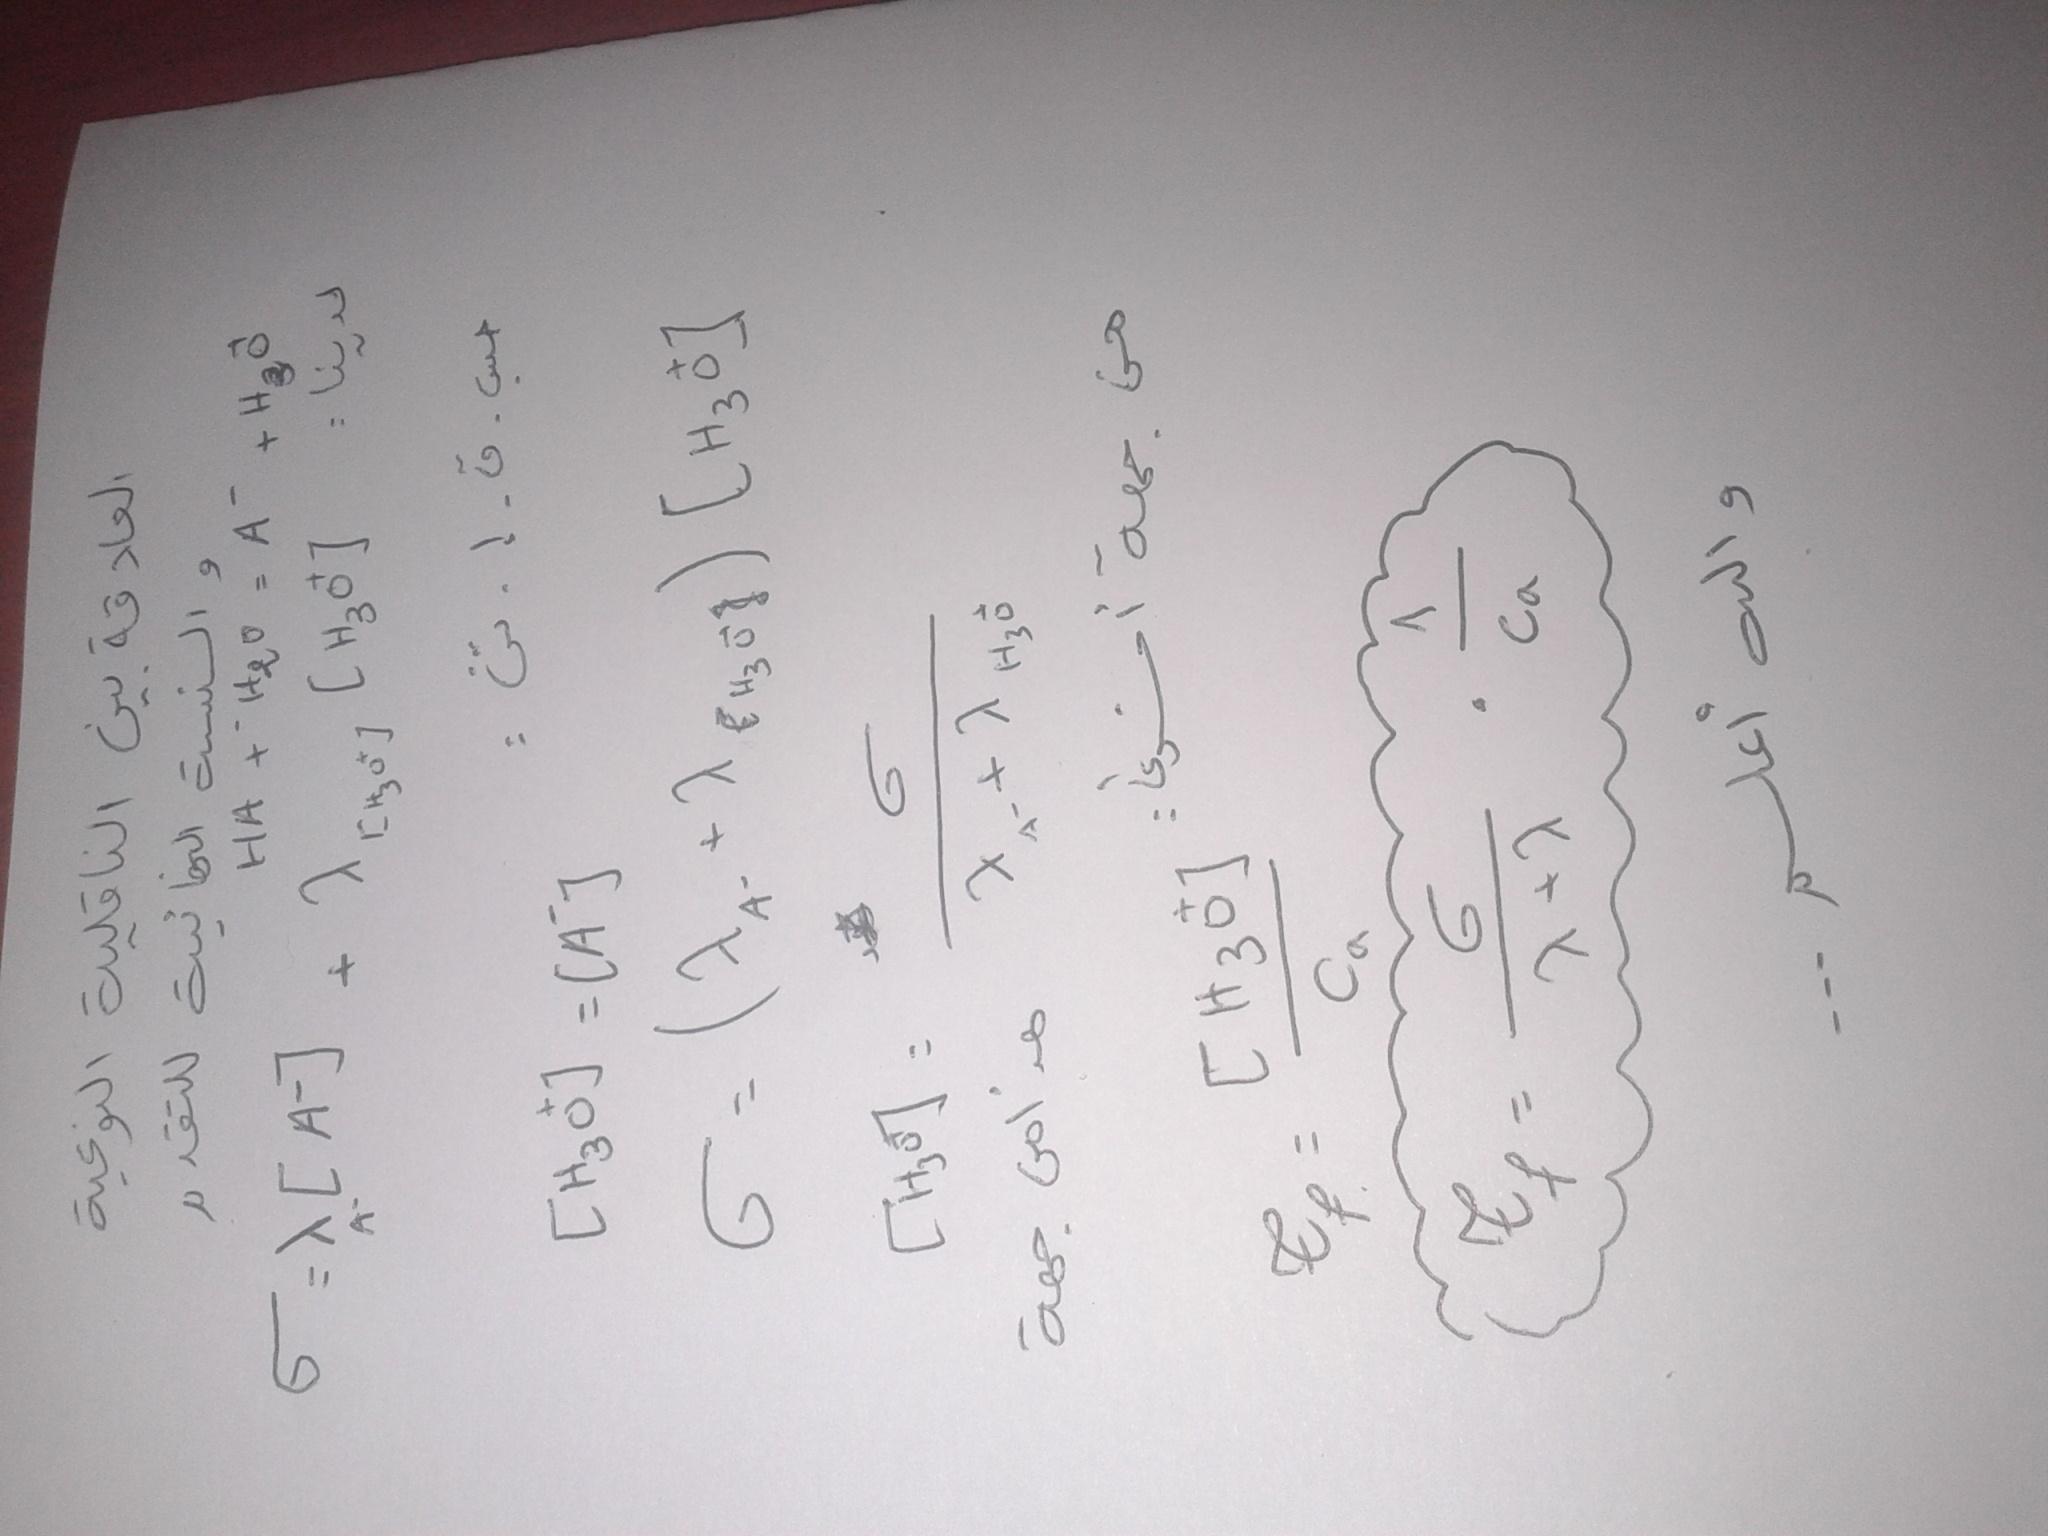 العلاقة بين الناقلية النوعية
و النسبة النهائية للتقدم
HA + H₂O = A⁻ + H₃O⁺
لدينا :
σ = λ_A⁻ [A⁻] + λ_[H₃O⁺] [H₃O⁺]
حسب . ق . ا . ش :
[H₃O⁺] = [A⁻]
σ = (λ_A⁻ + λ_[H₃O⁺]) [H₃O⁺]
[H₃O⁺] = σ / (λ_A⁻ + λ_H₃O⁺)
هذا من جهة
من جهة أخرى :
τ_f = [H₃O⁺] / Ca
τ_f = σ / (λ + λ) . 1 / Ca
و الله أعلم ...